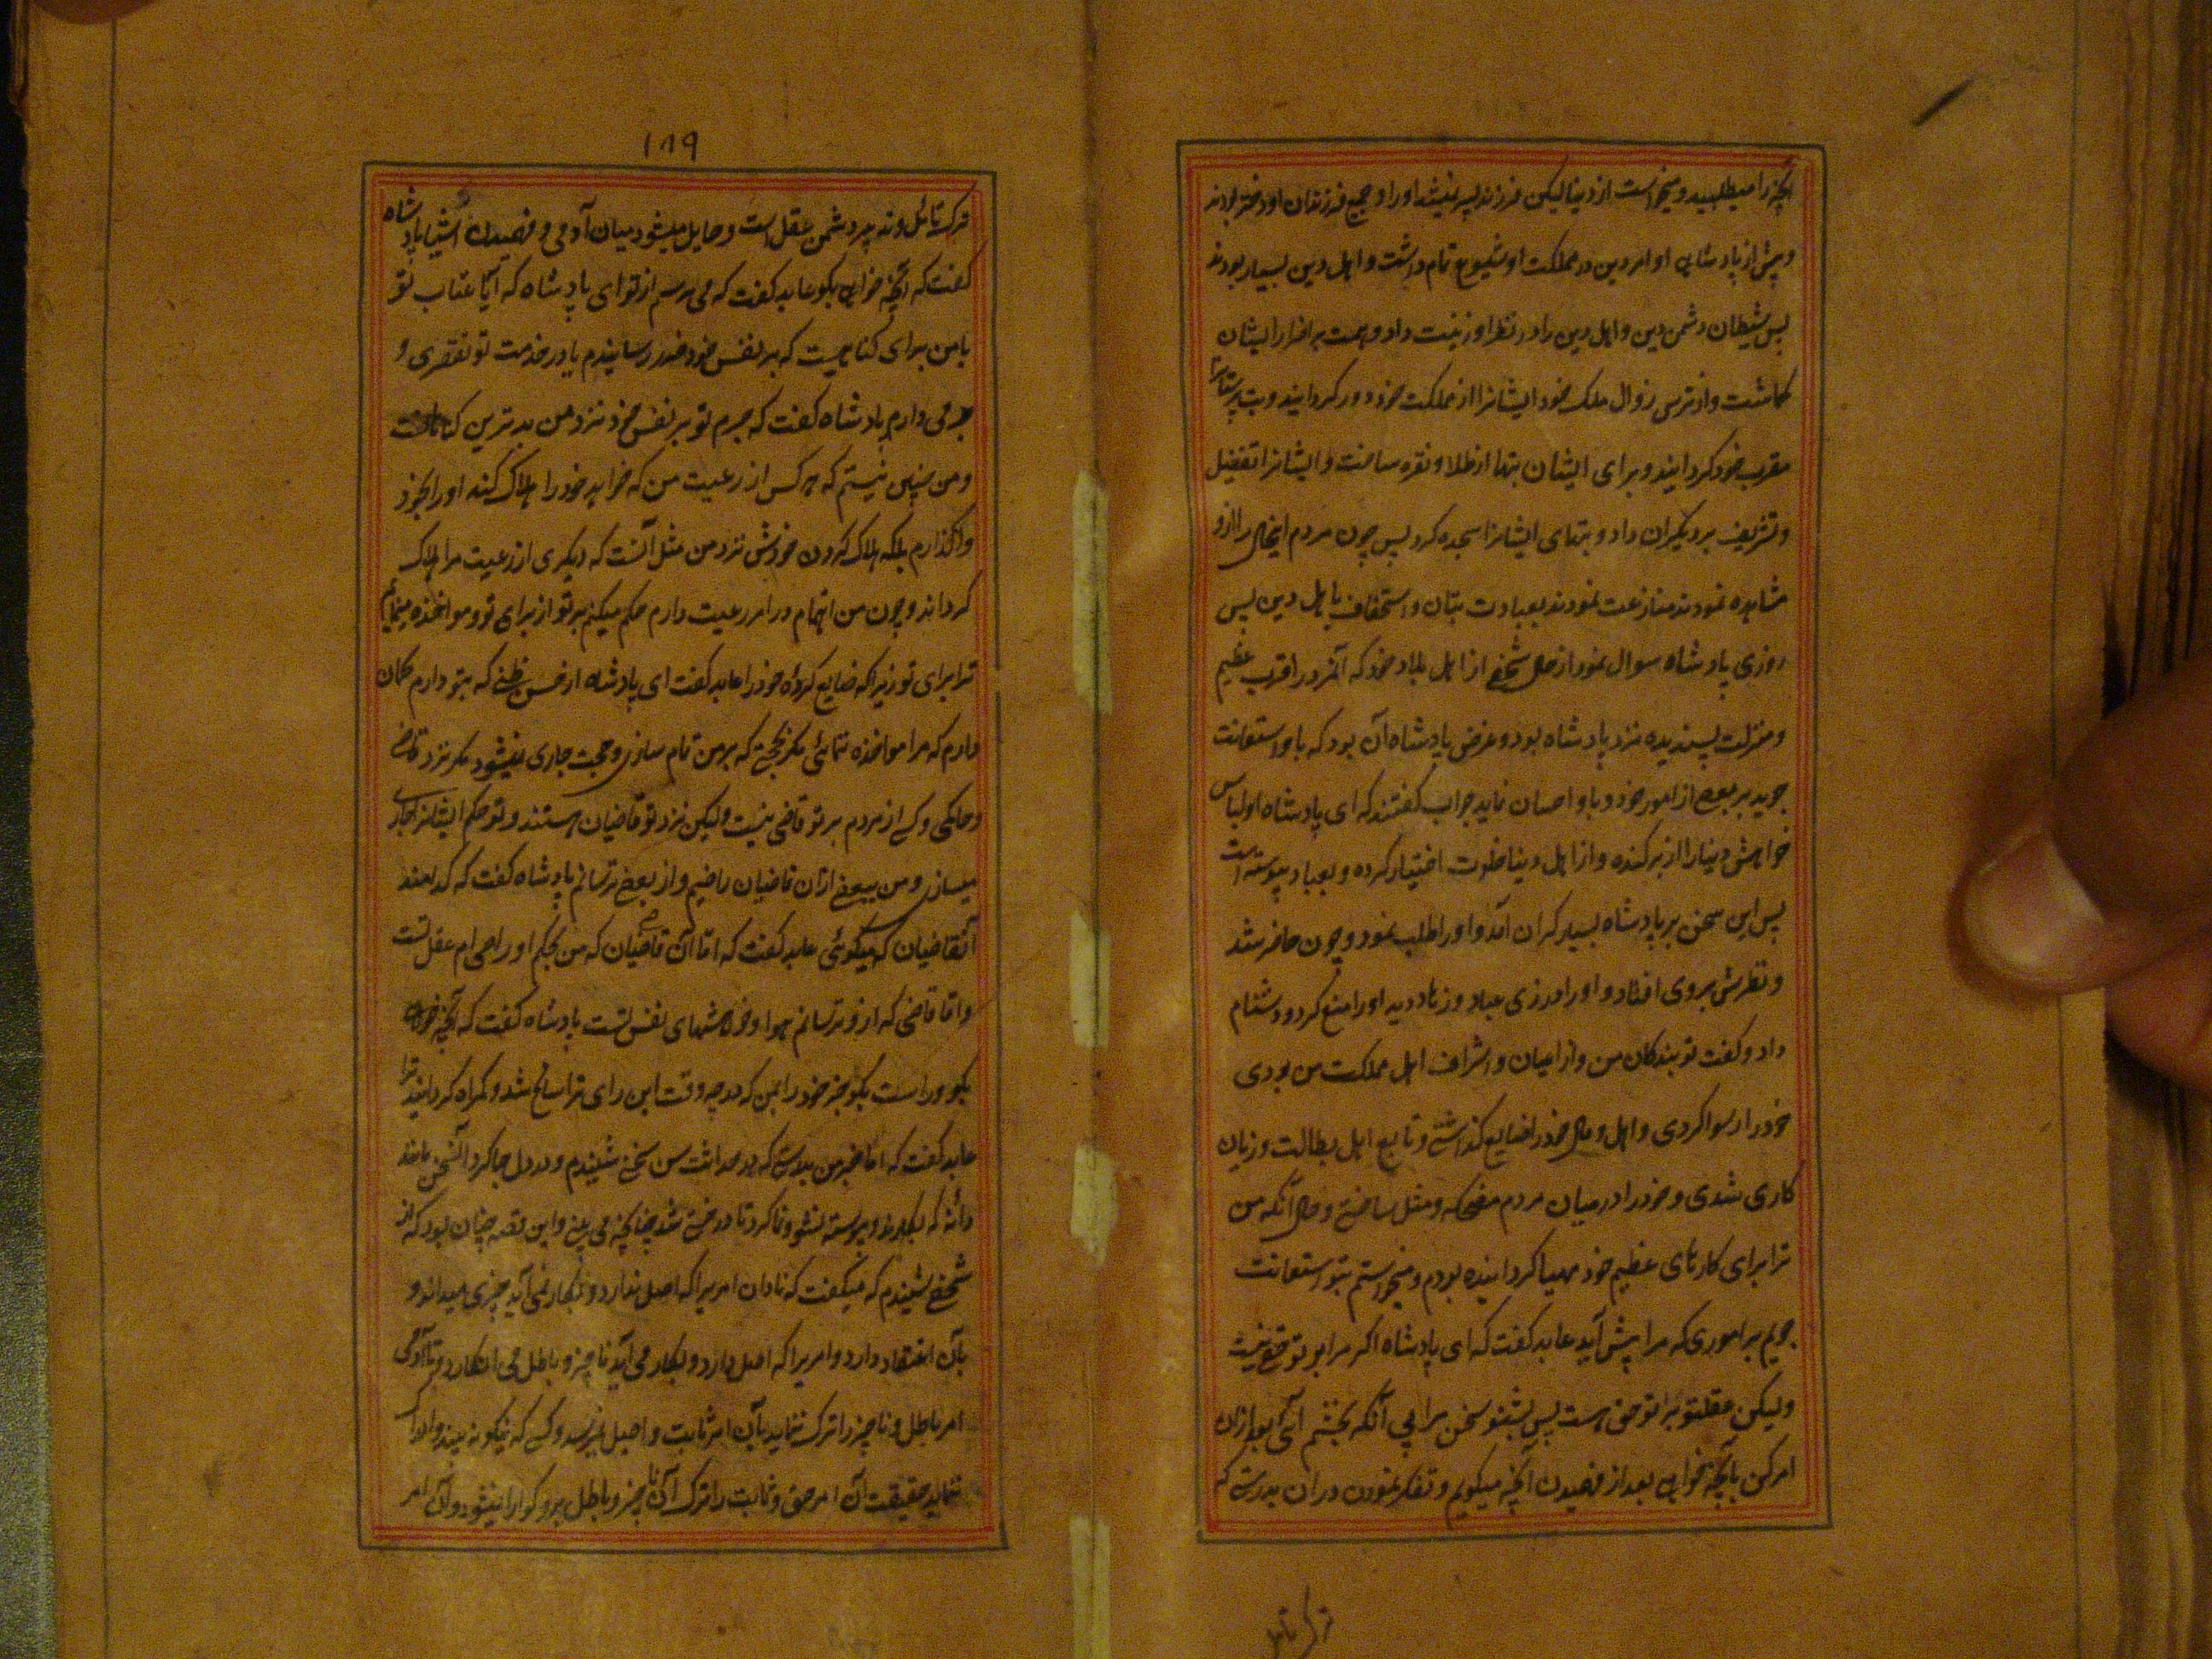 آنچه را میطلبید و میخواست از دنیا لیکن فرزند پسر نمیشد او را و جمیع فرزندان او دختر بودند
و پیش از پادشاهی او امر دین در مملکت او شیوع تمام داشت و اهل دین بسیار بودند
پس شیطان دشمنی دین و اهل دین را در نظر او زینت داد و همت بر اضرار ایشان
گماشت و از ترس زوال ملک خود ایشانرا از مملکت خود دور گردانید و بت پرستانرا
مقرب خود گردانید و برای ایشان بتها از طلا و نقره ساخت و ایشانرا تفضیل
و تشریف بر دیگران داد و بتهای ایشانرا سجده کرد پس چون مردم اینحال را ازو
مشاهده نمودند مسارعت نمودند بعبادت بتان و استخفاف باهل دین پس
روزی پادشاه سوال نمود از حال شخصی از اهل بلاد خود که آنمرد را قرب عظیم
و منزلت پسندیده نزد پادشاه بود و غرض پادشاه آن بود که باو استعانت
جوید بر بعضی از امور خود و باو احسان نماید جواب گفتند که ای پادشاه او لباس
خواهش دنیا را از بر کنده و از اهل دنیا خلوت اختیار کرده و بعباد پیوسته است
پس این سخن بر پادشاه بسیار گران آمد و او را طلب نمود و چون حاضر شد
و نظرش بروی افتاد و او را در زی عباد و زهاد دید او را منع کرد و دشنام
داد و گفت تو بندگان من و از اعیان و اشراف اهل مملکت من بودی
خود را رسوا کردی و اهل و مال خود را ضایع گذاشتی و تابع اهل بطالت و زیان
کاری شدی و خود را در میان مردم مضحکه و مثل ساختی و حال آنکه من
ترا برای کارهای عظیم خود مهیا گردانیده بودم و میخواستم بتو استعانت
جویم بر اموری که مرا پیش آید عابد گفت که ای پادشاه اگر مرا بر تو حقی نیست
ولیکن عقلتو بر تو حق هست پس بشنو سخن مرا بی آنکه بخشم آئی بعد ازان
امر کن بآنچه خواهی بعد از فهمیدن آنچه میگویم و تفکر نمودن دران بدرستی که
ترک تامل
۱۸۹
ترک تامل و تدبر دشمن عقل است و حایل میشود میان آدمی و فهمیدن اشیا پادشاه
گفت که آنچه خواهی بگو عابد گفت که می پرسم از تو ای پادشاه که آیا عتاب تو
با من برای گناهیست که بر نفس خود ضرر رسانیدم یا در خدمت تو تقصیری و
جرمی دارم پادشاه گفت که جرم تو بر نفس خود نزد من بدترین گناهانست
و من چنین نیستم که هر کس از رعیت من که خواهد خود را هلاک کند او را بخود
واگذارم بلکه هلاک کردن خودش نزد من مثل آنست که دیگری از رعیت مرا هلاک
گرداند و چون من اهتمام در امر رعیت دارم حکم میکنم بر تو از برای تو و مواخذه مینمایم
ترا برای تو زیرا که ضایع کردهٔ خود را عابد گفت ای پادشاه از حسن ظنی که بتو دارم گمان
دارم که مرا مواخذه ننمائی مگر بحجتی که بر من تمام سازی و حجت جاری نمیشود مگر نزد قاضی
و حاکمی و کسی از مردم بر تو قاضی نیست ولیکن نزد تو قاضیان هستند و تو حکم ایشانرا جاری
میسازی و من ببعضی ازان قاضیان راضیم و از بعضی ترسانم پادشاه گفت که کدامند
آنقاضیان که میگوئی عابد گفت که اما آن قاضیان که من بحکم او راضی ام عقل تست
و اما قاضی که ازو ترسانم هوا و خواهشهای نفس تست پادشاه گفت که آنچه خواهی
بگو و راست بگو خبر خود را بمن که در چه وقت این رای ترا سانح شد و که گمراه گردانید ترا
عابد گفت که اما خبر من بدرستی که در حداثت سن سخنی شنیدم و در دل جا کرد آنسخن مانند
دانهٔ که بکارند و پیوسته نشو و نما کرد تا درختی شد چنانچه می بینی و این قصه چنان بود که از
شخصی شنیدم که میگفت که نادان امریرا که اصل ندارد و بکار نمی آید چیزی میداند و
بآن اعتقاد دارد و امریرا که اصل دارد و بکار می آید ناچیز و باطل می انگارد و تا آدمی
امر باطل و ناچیز را ترک ننماید بآن امر ثابت و اصیل نمیرسد و کسی که نیکو نه بیند و ادراک
ننماید حقیقت آن امر حق و ثابت را ترک آن ناچیز و باطل برو گوارا نمیشود و آن امر